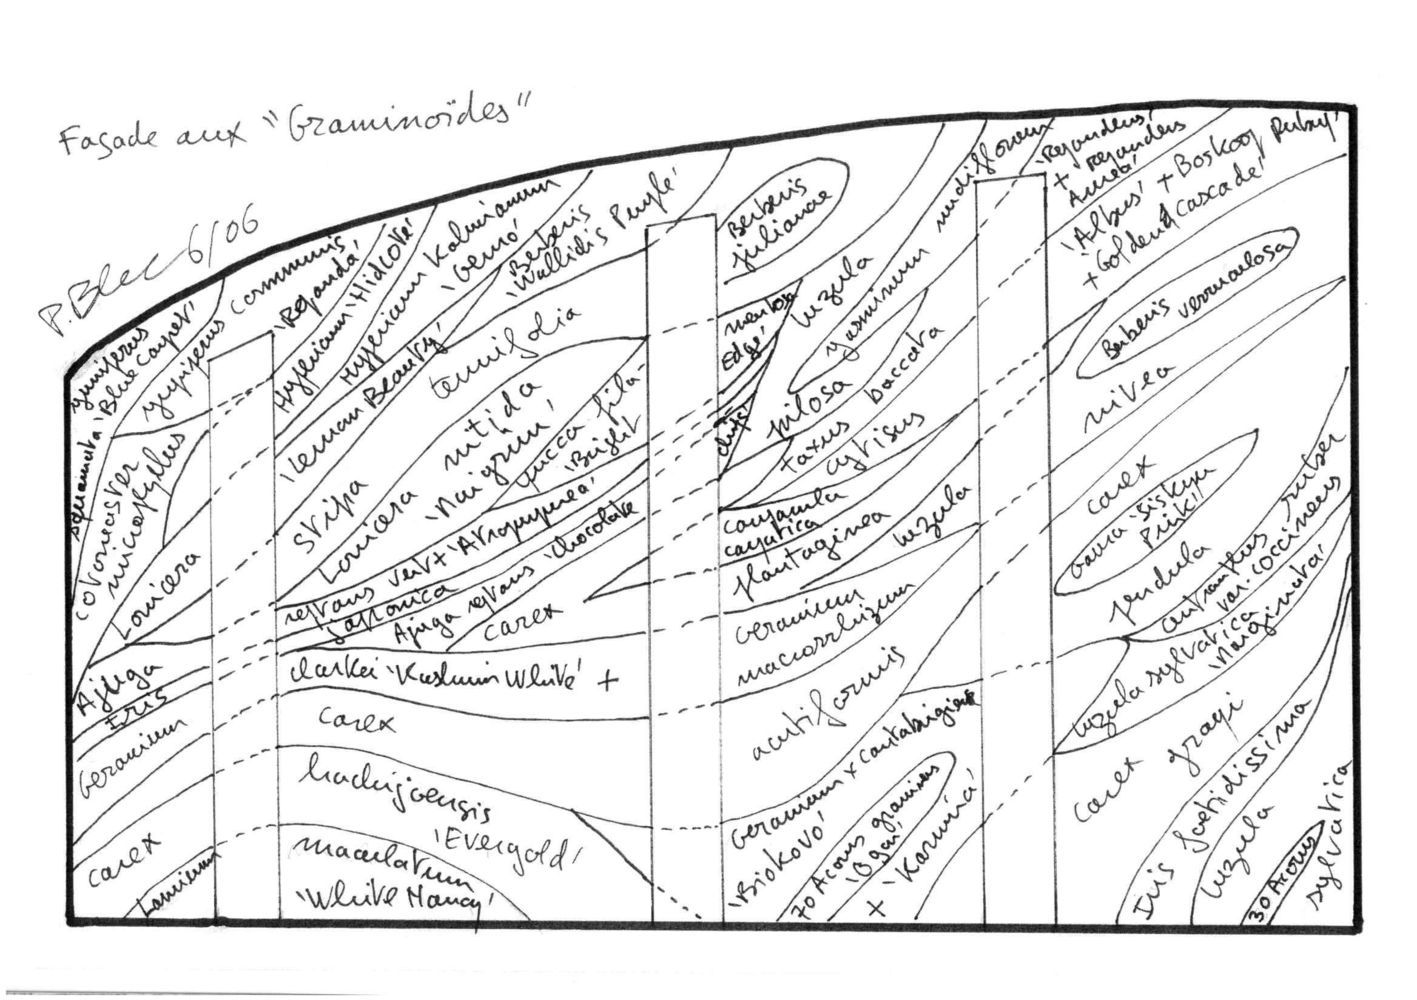 Façade aux "Graminoïdes"
P. Blanc 6/06
Juniperus
squamata 'Blue Carpet'
Juniperus communis
'Repanda'
Hypericum 'Hidcote'
Hypericum Kalmianum
'Gemo'
Berberis
'Wallichii Purple'
Berberis
julianae
Luzula
Jasminum nudiflorum
'Repandens'
+ 'Repandens
Aurea'
'Albus' + Boskoop Ruby'
+ 'Golden Cascade'
Berberis
verruculosa
cotoneaster
microphyllus
Lonicera
'Leman Beauty'
stipa tenuifolia
Lonicera nitida
'Maigrün'
Yucca fila-
'Bright
mentosa
Edge'
pilosa
Taxus baccata
cytisus
nivea
Luzula
carex
Gaura 'Siskyou
Pink'
pendula
Ajuga
reptans vert + 'Atropurpurea'
Iris
japonica
Ajuga reptans 'chocolate
chip'
carex
plantaginea
Campanula
carpatica
Geranium
clarkei 'Kashmir White' +
Geranium
macrorrhizum
Cotinus
var. coccineus
Luzula sylvatica
'Marginata'
carex
acutiformis
carex
hachijoensis
'Evergold'
Geranium x cantabrigiense
'Biokovo'
+ 'Karmina'
70 Acorus gramineus
'Ogon'
Lamium
maculatum
'White Nancy'
carex grayi
Iris foetidissima
Luzula
sylvatica
30 Acorus